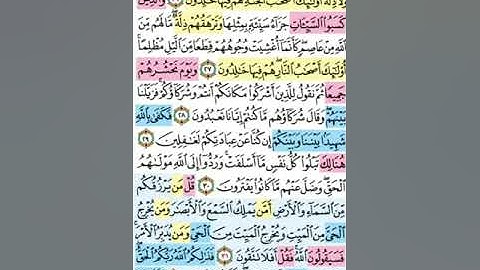 وَلَا ذِلَّةٌ أُولَٰئِكَ أَصْحَابُ الْجَنَّةِ هُمْ فِيهَا خَالِدُونَ ٢٦ وَالَّذِينَ
كَسَبُوا السَّيِّئَاتِ جَزَاءُ سَيِّئَةٍ بِمِثْلِهَا وَتَرْهَقُهُمْ ذِلَّةٌ مَا لَهُمْ مِنَ
اللَّهِ مِنْ عَاصِمٍ كَأَنَّمَا أُغْشِيَتْ وُجُوهُهُمْ قِطَعًا مِنَ اللَّيْلِ مُظْلِمًا
أُولَٰئِكَ أَصْحَابُ النَّارِ هُمْ فِيهَا خَالِدُونَ ٢٧ وَيَوْمَ نَحْشُرُهُمْ
جَمِيعًا ثُمَّ نَقُولُ لِلَّذِينَ أَشْرَكُوا مَكَانَكُمْ أَنْتُمْ وَشُرَكَاؤُكُمْ فَزَيَّلْنَا
بَيْنَهُمْ وَقَالَ شُرَكَاؤُهُمْ مَا كُنْتُمْ إِيَّانَا تَعْبُدُونَ ٢٨ فَكَفَىٰ بِاللَّهِ
شَهِيدًا بَيْنَنَا وَبَيْنَكُمْ إِنْ كُنَّا عَنْ عِبَادَتِكُمْ لَغَافِلِينَ ٢٩
هُنَالِكَ تَبْلُو كُلُّ نَفْسٍ مَا أَسْلَفَتْ وَرُدُّوا إِلَى اللَّهِ مَوْلَاهُمُ
الْحَقِّ وَضَلَّ عَنْهُمْ مَا كَانُوا يَفْتَرُونَ ٣٠ قُلْ مَنْ يَرْزُقُكُمْ
مِنَ السَّمَاءِ وَالْأَرْضِ أَمَّنْ يَمْلِكُ السَّمْعَ وَالْأَبْصَارَ وَمَنْ يُخْرِجُ
الْحَيَّ مِنَ الْمَيِّتِ وَيُخْرِجُ الْمَيِّتَ مِنَ الْحَيِّ وَمَنْ يُدَبِّرُ الْأَمْرَ
فَسَيَقُولُونَ اللَّهُ فَقُلْ أَفَلَا تَتَّقُونَ ٣١ فَذَٰلِكُمُ اللَّهُ رَبُّكُمُ الْحَقُّ